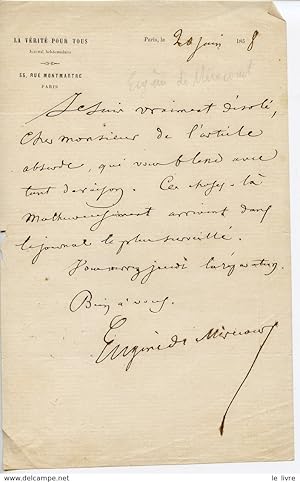 LA VÉRITÉ POUR TOUS
Journal hebdomadaire
55, RUE MONTMARTRE
PARIS
Paris, le 20 juin 1858
Eugène de Mirecourt
Je suis vraiment désolé,
Cher monsieur de l'article
absurde, qui vous blesse avec
tant de raison. Ces choses-là
Malheureusement arrivent dans
le journal le plus surveillé.
Vous aurez jeudi la réparation.
Bien à vous.
Eugène de Mirecourt
© www.delcampe.net
le livre